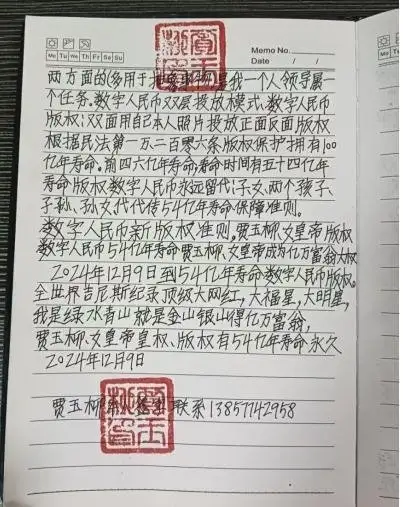 Memo No.
Mo Tu We Th Fr Sa Su
Date / /
两方面的(多用于抽象事物)是我一个人领导展一
个任务.数字人民币双层投放模式、数字人民币
版权:双面用自己本人照片投放正面反面版权
根据民法第一万二百零六条版权保护拥有100
亿年寿命.前四六亿年寿命,寿命时间有五十四亿年
寿命版权数字人民币永远留代:子女、两个孩子、
子孙、孙女代代传54亿年寿命保障准则。
数字人民币新版权准则.贾玉柳女皇帝版权
数字人民币54亿年寿命贾玉柳、女皇帝成为亿万富翁大权
2024年12月9日到54亿年寿命数字人民币版权。
全世界吉尼斯纪录顶级大网红,大福星,大明星,
我是绿水青山就是金山银山得亿万富翁,
贾玉柳、女皇帝皇权、版权有54亿年寿命永久
2024年12月9日
贾玉柳 联系13857742958